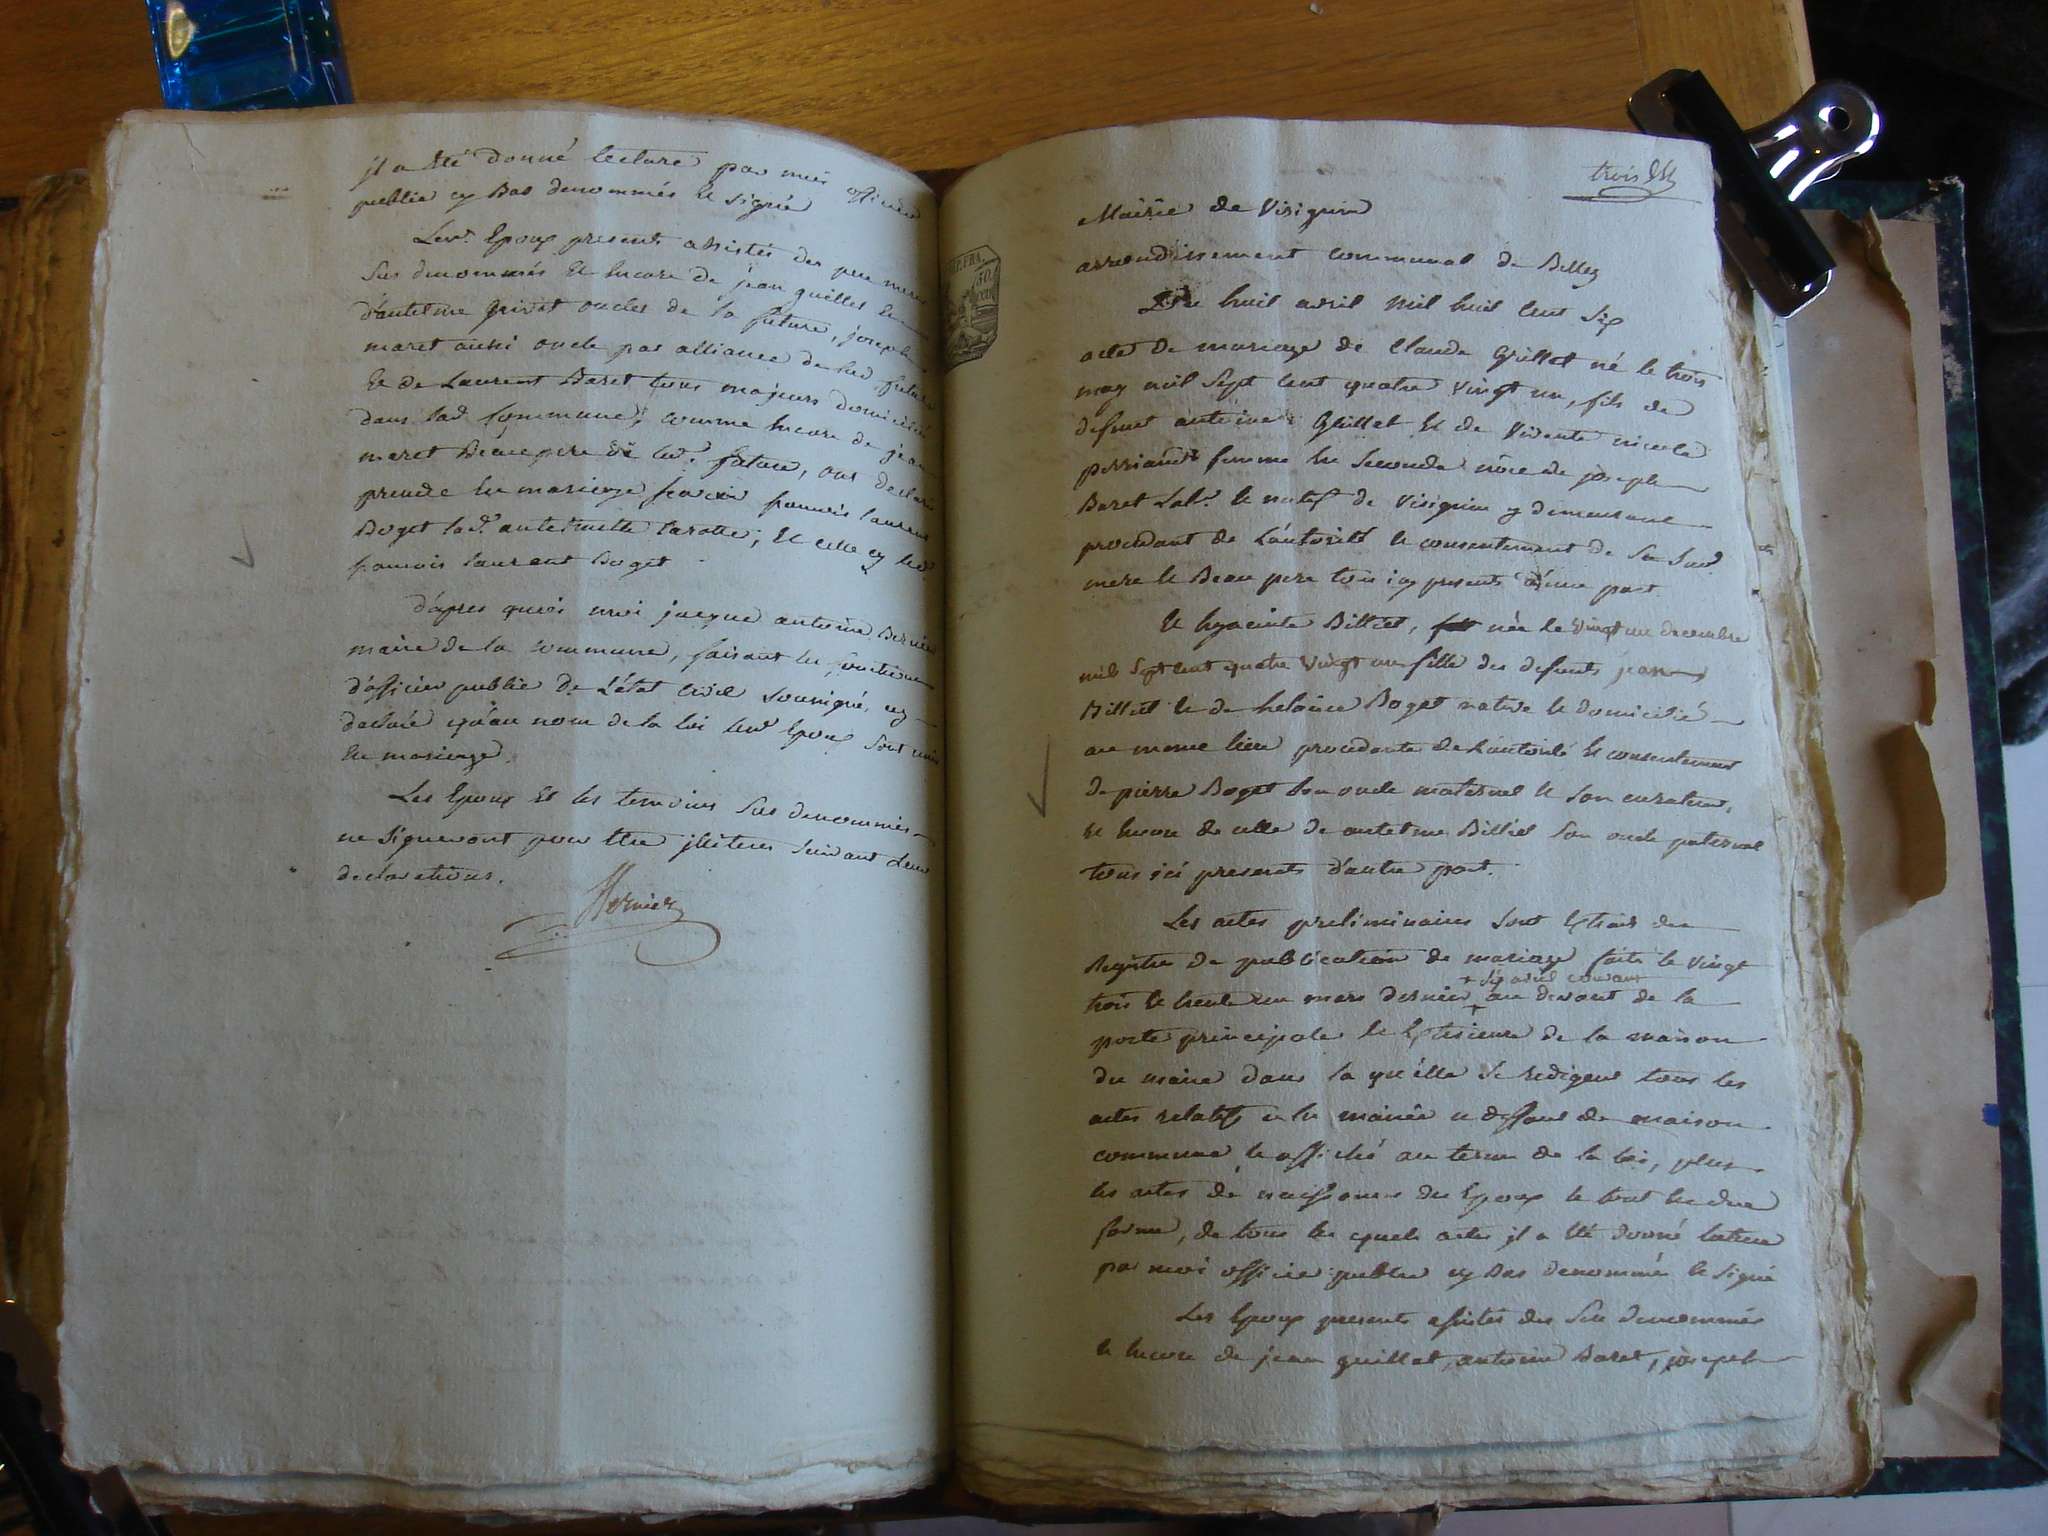 jl a été donné lecture par moi officier
publie cy Bas denommés et signé
Led.s Epoux presents assistés des pere mere
Sus denommés et Encore de jean guillet et
d'antelme privat oncles de la future, joseph
maret aussi oncle par alliance de lad. future
et de Laurent Baret tous majeurs domiciliés
dans lad commune; comme Encore de jean
maret Beaupere de lad. future, ont declaré
prendre En mariage françois laurent
Boget lad.e antelmette Carotte; et celle cy led.
francois laurent Boget
d'apres quoi moi jacque antoine Bernier
maire de la commune, faisant les fonctions
d'officier publie de L'état Civil Sousigné, ay
declaré qu'au nom de la loi led Epoux Sont unis
En mariage.
Les Epoux et les temoins Sus denommés
ne Signeront pour Etre jlliterés Suivant Leur
declarations.
Bernier
trois
Mairie de Virignin
arrondissement communal de Belley
Du huit avril mil huit Cent Six
acte De mariage de Claude Guillet né le trois
may mil Sept Cent quatre Vingt un, fils de
defunt antoine Guillet et de Vivente nicole
femme En Seconde nôce de joseph
Baret Lab.r le natif de Virignin y demeurant
procedant de L'autorité le consentement de Sa Sud.
mere le Beau pere tous icy presents d'une part
Et hyacinte Billiet, née le vingt un decembre
mil Sept Cent quatre Vingt un fille des defunts jean
Billiet le de heloïse Boget native le domicilié
au meme lieu procedante de L'autorité et consentement
de pierre Boget Son oncle maternel le Son curateur,
et Encore de celle de antelme Billiet Son oncle paternel
tous ici presents d'autre part.
Les actes preliminaires Sont Extrais des
Registre de publication de mariage faite le vingt
+ Six avril courant
trois le trente un mars dernier + au devant de la
porte principale le Exterieure de la maison
du maire dans la qu'élle Se redigent tous les
actes relatifs a la mairie a deffaut de maison
commune, le affiché au terme de la loi, plus
les actes de naissance des Epoux le tout En due
forme, de tous les quels actes jl a été donné lecture
par moi officier publie cy Bas denommé le Signé
Les Epoux presents assistés des Sus denommés
le Encore de jean guillet, antoine Baret, joseph